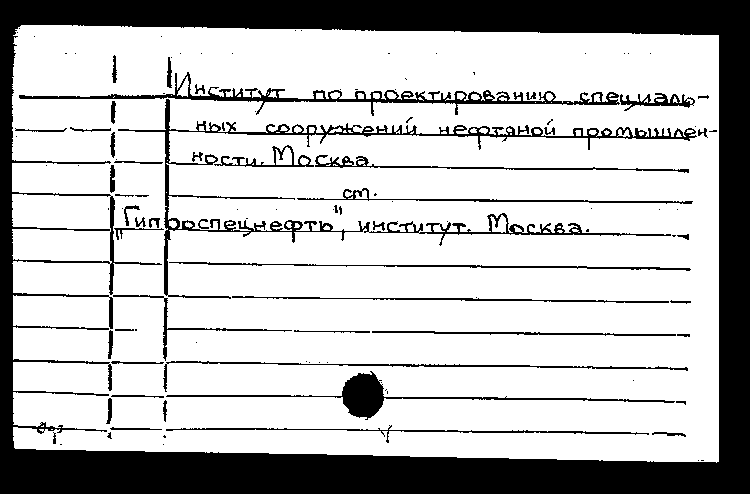 Институт по проектированию специаль-
ных сооружений нефтяной промышлен-
ности. Москва.
ст.
„Гипроспецнефть", институт. Москва.